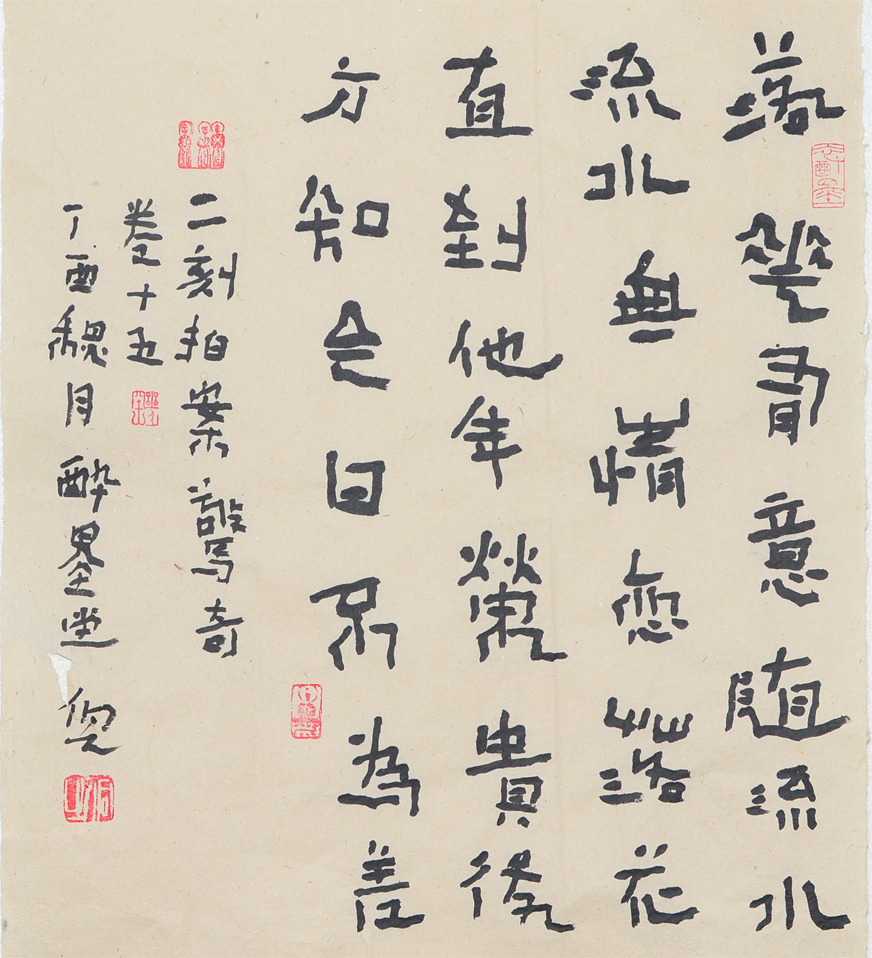 落華有意随流水
流水無情恋落花
直到他年榮貴後
方知今日不為差
二刻拍案驚奇
卷十五
丁酉槐月醉墨堂